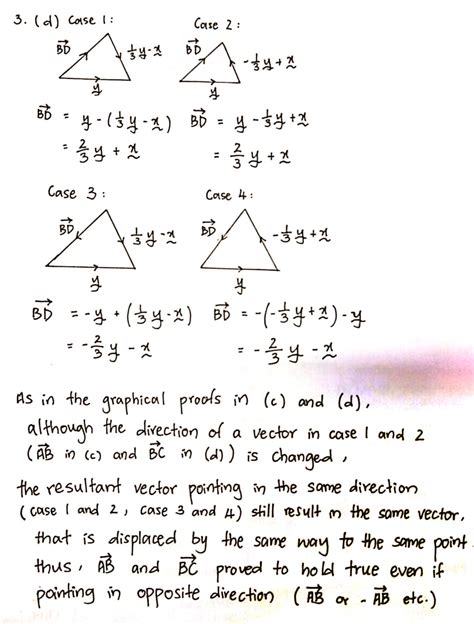 3. (d) Case 1:
Case 2:
BD→ ⅓y - x
BD→ -⅓y + x
y
y
BD→ = y - (⅓y - x)
BD→ = y - ⅓y + x
= ⅔y + x
= ⅔y + x
Case 3:
Case 4:
BD→ ⅓y - x
BD→ -⅓y + x
y
y
BD→ = -y + (⅓y - x)
BD→ = -(-⅓y + x) - y
= -⅔y - x
= -⅔y - x
As in the graphical proofs in (c) and (d),
although the direction of a vector in case 1 and 2
(AB→ in (c) and BC→ in (d)) is changed,
the resultant vector pointing in the same direction
(case 1 and 2, case 3 and 4) still result in the same vector,
that is displaced by the same way to the same point.
thus, AB→ and BC→ proved to hold true even if
pointing in opposite direction (AB→ or -AB→ etc.)